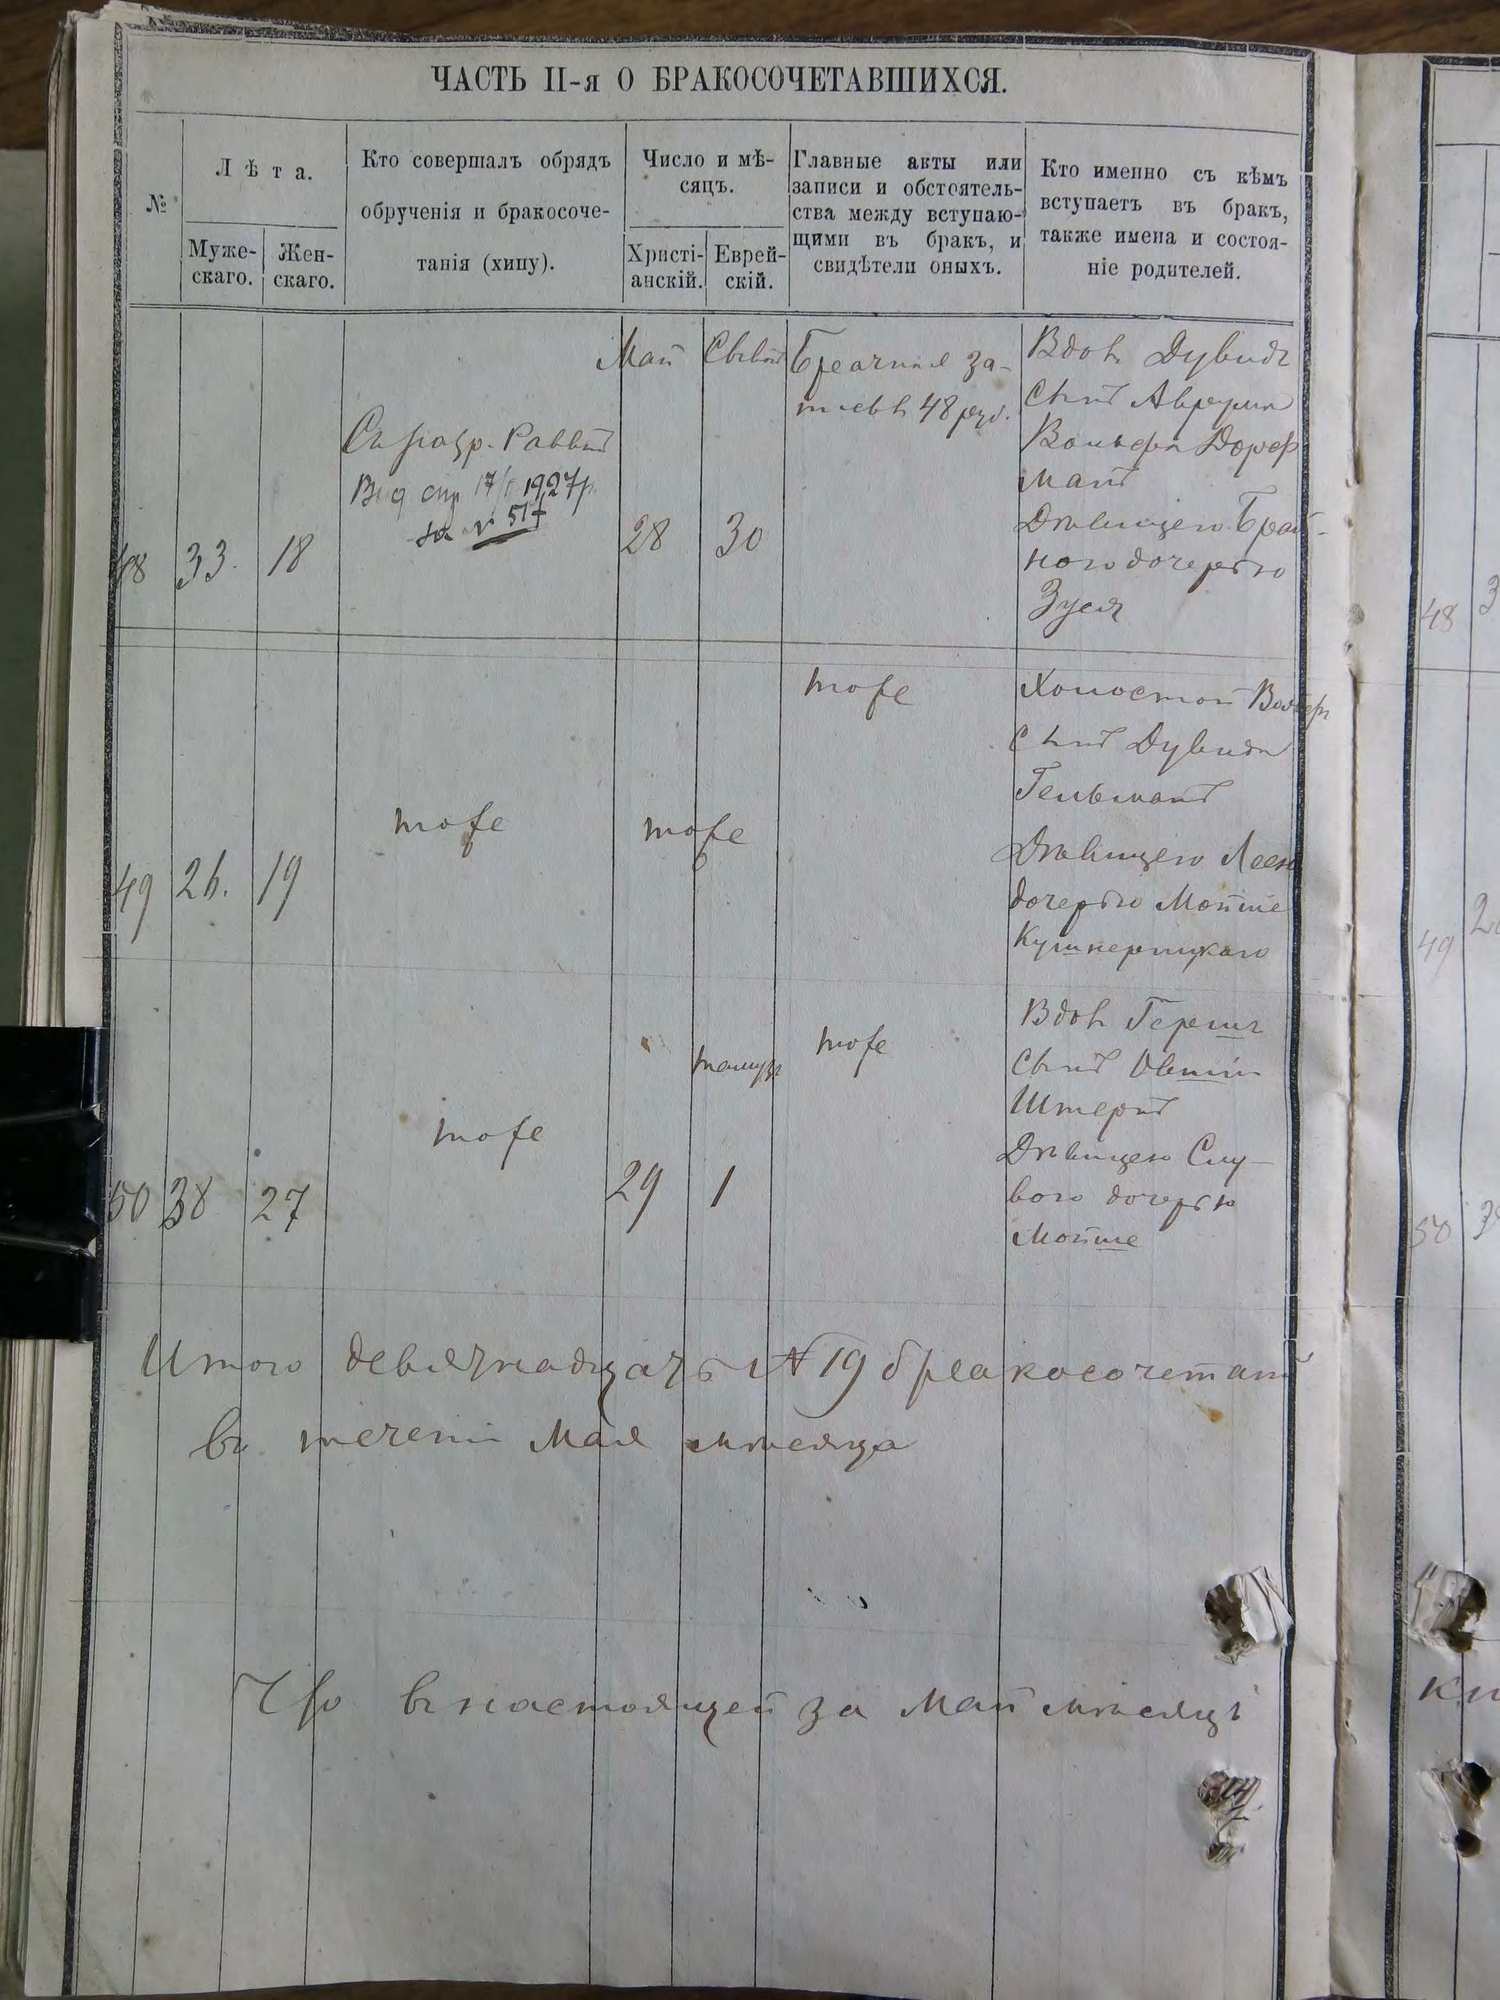 ЧАСТЬ II-я О БРАКОСОЧЕТАВШИХСЯ.
№
Лѣта.
Муже-
скаго.
Жен-
скаго.
Кто совершалъ обрядъ
обрученія и бракосоче-
танія (хипу).
Число и мѣ-
сяцъ.
Христі-
анскій.
Еврей-
скій.
Главные акты или
записи и обстоятель-
ства между вступаю-
щими въ бракъ, и
свидѣтели оныхъ.
Кто именно съ кѣмъ
вступаетъ въ бракъ,
также имена и состоя-
ніе родителей.
48
33.
18
Съ разр. Раввин
Вид 1927р.
за № 517
Май
28
30
Брачная за-
пись въ 48 руб.
Вдов. Дувидъ
сынъ Аврума
Вольфа Дорф
манъ
Дѣвицею Брай-
ною дочерью
Зуся
49
26.
19
тоже
тоже
тоже
Холостой Вольфъ
сынъ Дувида
Гельманъ
Дѣвицею Леею
дочерью Мойше
50
38
27
тоже
29
тамузъ
1
тоже
Вдов Гершъ
сынъ
Штернъ
Дѣвицею Слу-
вою дочерью
Мойше
Итого девятнадцать № 19 бракосочетаній
въ теченіи Мая мѣсяца
Что въ настоящей за Май мѣсяцъ
48 3
49 2
50 3
кн